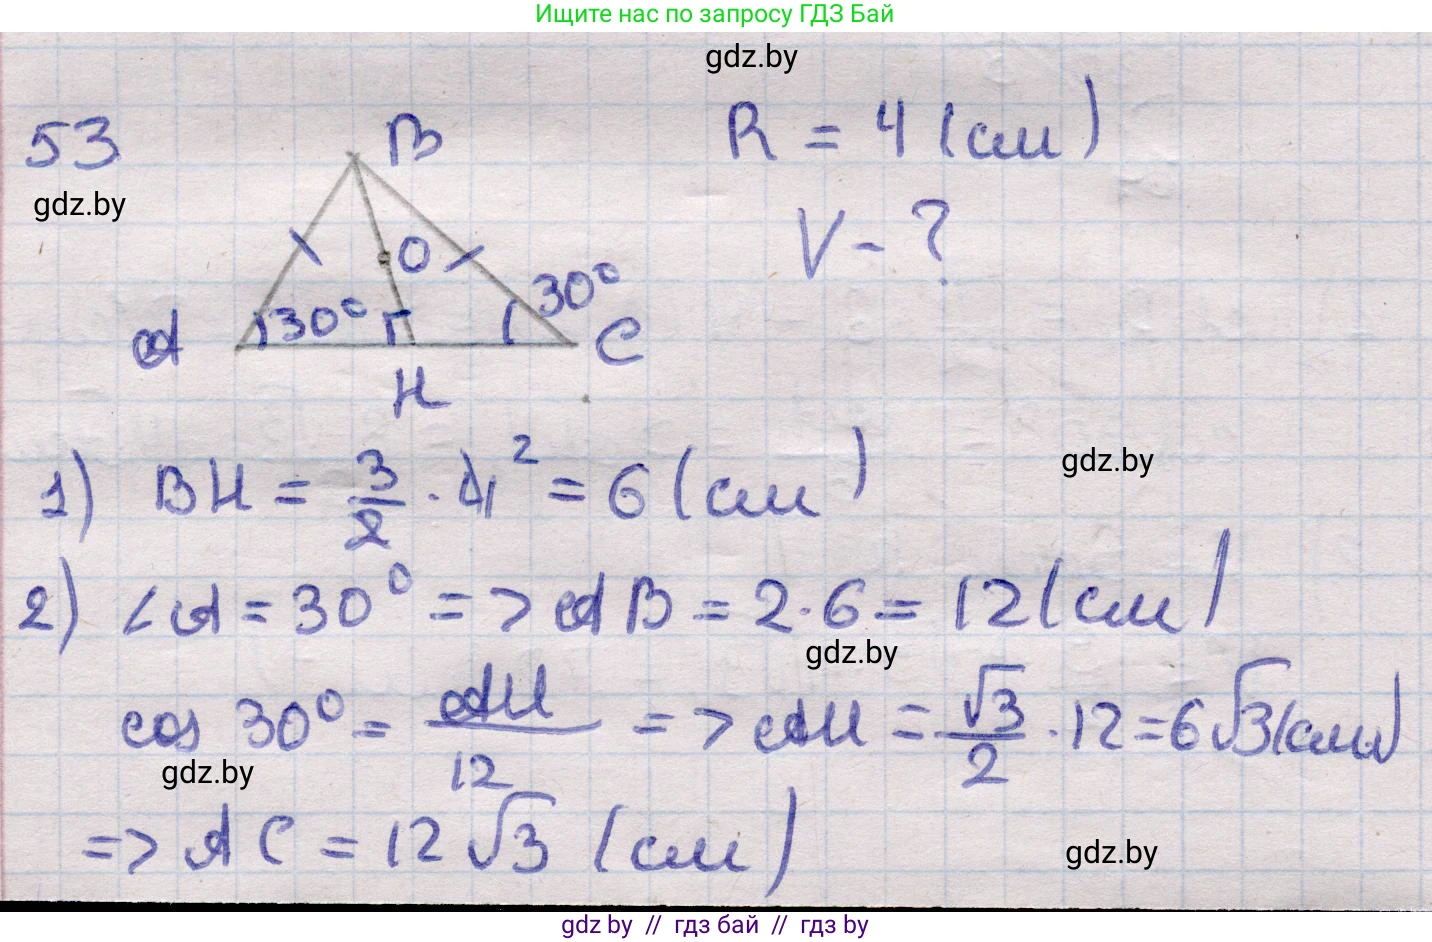 Ищите нас по запросу ГДЗ Бай
gdz.by
53
B
R = 4 (см)
gdz.by
V - ?
O
30°
30°
A
C
H
1) BH = 3/2 · 4² = 6 (см)
gdz.by
2) ∠A = 30° => AB = 2·6 = 12 (см)
gdz.by
cos 30° = AH/12 => AH = √3/2 · 12 = 6√3 (см)
gdz.by
=> AC = 12√3 (см)
gdz.by
gdz.by // гдз бай // гдз by